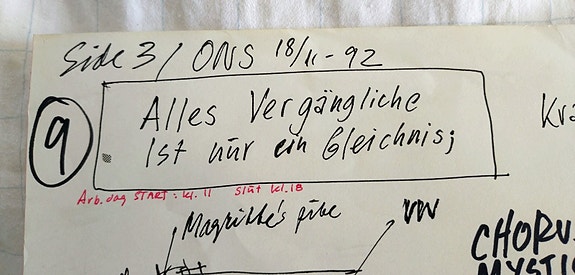 Side 3 / ONS 18/11-92
9
Alles Vergängliche
Ist nur ein Gleichnis;
Kra
Arb.dag START: kl. 11 Slut kl. 18
Magritte's pibe
VW
CHORU
MYSTI